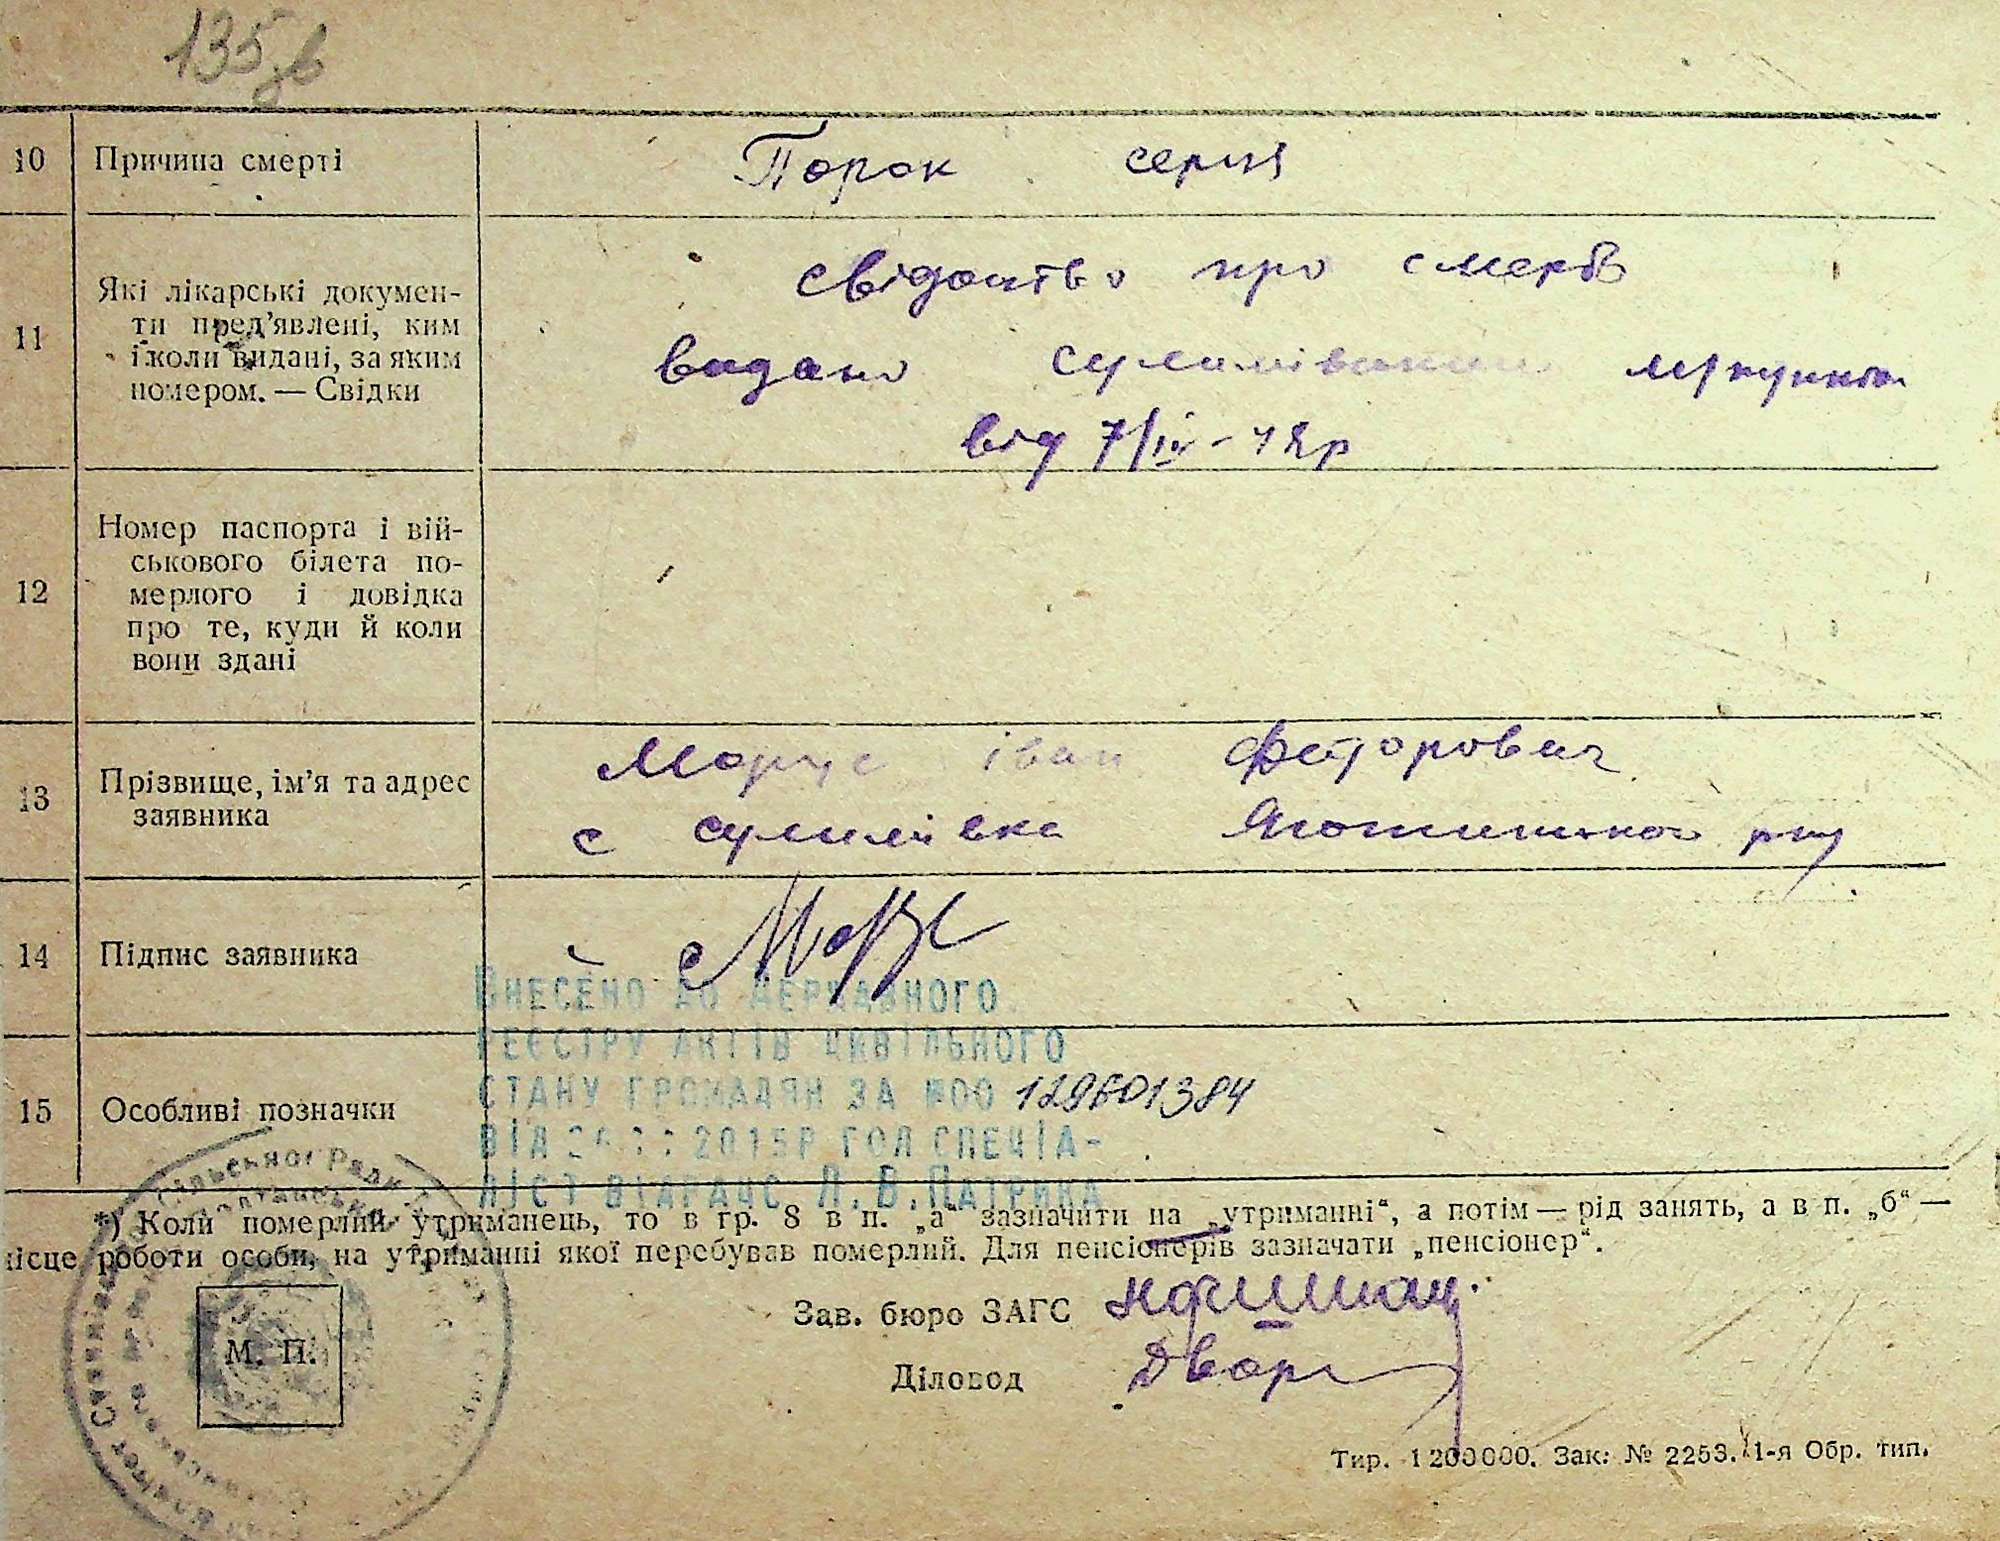 135 зв
10 Причина смерті Порок серця
11 Які лікарські докумен-
ти пред'явлені, ким
і коли видані, за яким
номером. — Свідки
свідоцтво про смерть
видано сулимівським
від 7/IV-48р
12 Номер паспорта і вій-
ськового білета по-
мерлого і довідка
про те, куди й коли
вони здані
13 Прізвище, ім'я та адрес
заявника
Іван Федорович
с сулимівка Яготинского р-ну
14 Підпис заявника
15 Особливі позначки
Внесено до Державного
реєстру актів цивільного
стану громадян за №00 129601384
від 2015р гол спеціа-
ліст відрацс Л.В.Патрика
*) Коли померлий утриманець, то в гр. 8 в п. „а" зазначити на „утриманні", а потім — рід занять, а в п. „б" —
місце роботи особи, на утриманні якої перебував померлий. Для пенсіонерів зазначати „пенсіонер".
М. П.
Зав. бюро ЗАГС
Діловод
Тир. 1 200000. Зак: № 2253. 1-я Обр. тип.